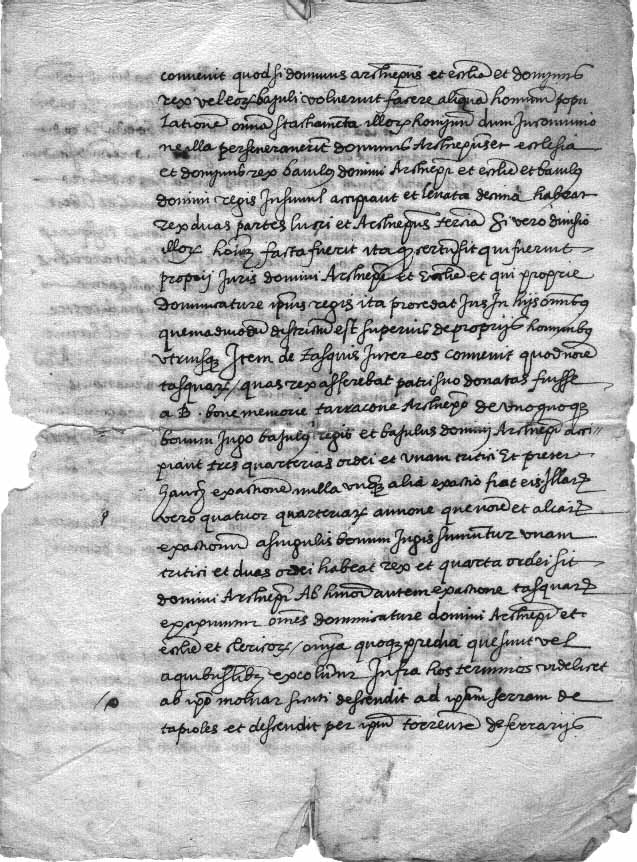 convenit quod si dominus archiepus et ecclia et dominus
rex vel eorꝝ bajuli voluerint facere aliquã hominum popu
lationẽ omnia stachamenta illorꝝ hominum dum in communio
ne illa perseueraverint dominus Archiepus et ecclesia
et dominus rex bauilus domini Archiepi et ecclie et bauilus
domini regis insimul accipiant et levata decima habeat
rex duas partes lucri et Archiepus tercia Si vero divisio
illorꝝ hoĩum facta fuerit ita qꝫ certum sit qui fuerint
proprij Juris domini Archiepi et Ecclie et qui proprie
dominicature ipius regis ita procedat Jus in hijs omnibꝫ
quemadmodũ distrittum est superius de proprijs hominibꝫ
vtriusqꝫ Item de tasquis inter eos convenit quod noĩe
tasquarꝝ / quas rex asserebat patri suo donatas fuisse
a B. bone memorie tarracone Archiepo de vnoquoqꝫ
bouum Jugo bajulus regis et bajulus domini Archiepi acci
piant tres quarterias ordei et vnam tritici Et preter
hanc exactionẽ nulla vnqꝫ alia exactio fiat eis. Illarꝝ
vero quatuor quarteriarꝝ annone que noĩe et aliarꝝ
exactionum a singulis bouum Jugis sumuntur vnam
tritici et duas ordei habeat rex et quarta ordei sit
domini Archiepi Ab hmõi autem exactione tasquarꝝ
excipiuntur omẽs dominicature domini Archiepi et
ecclie et clericorꝝ / omnia quoqꝫ predia que sunt vel
a quibuslibꝫ excoluntur Infra hos terminos videlicet
ab ipo molnar sicuti descendit ad ipam serram de
tapioles et descendit per ipum torrentẽ de ferrarijs